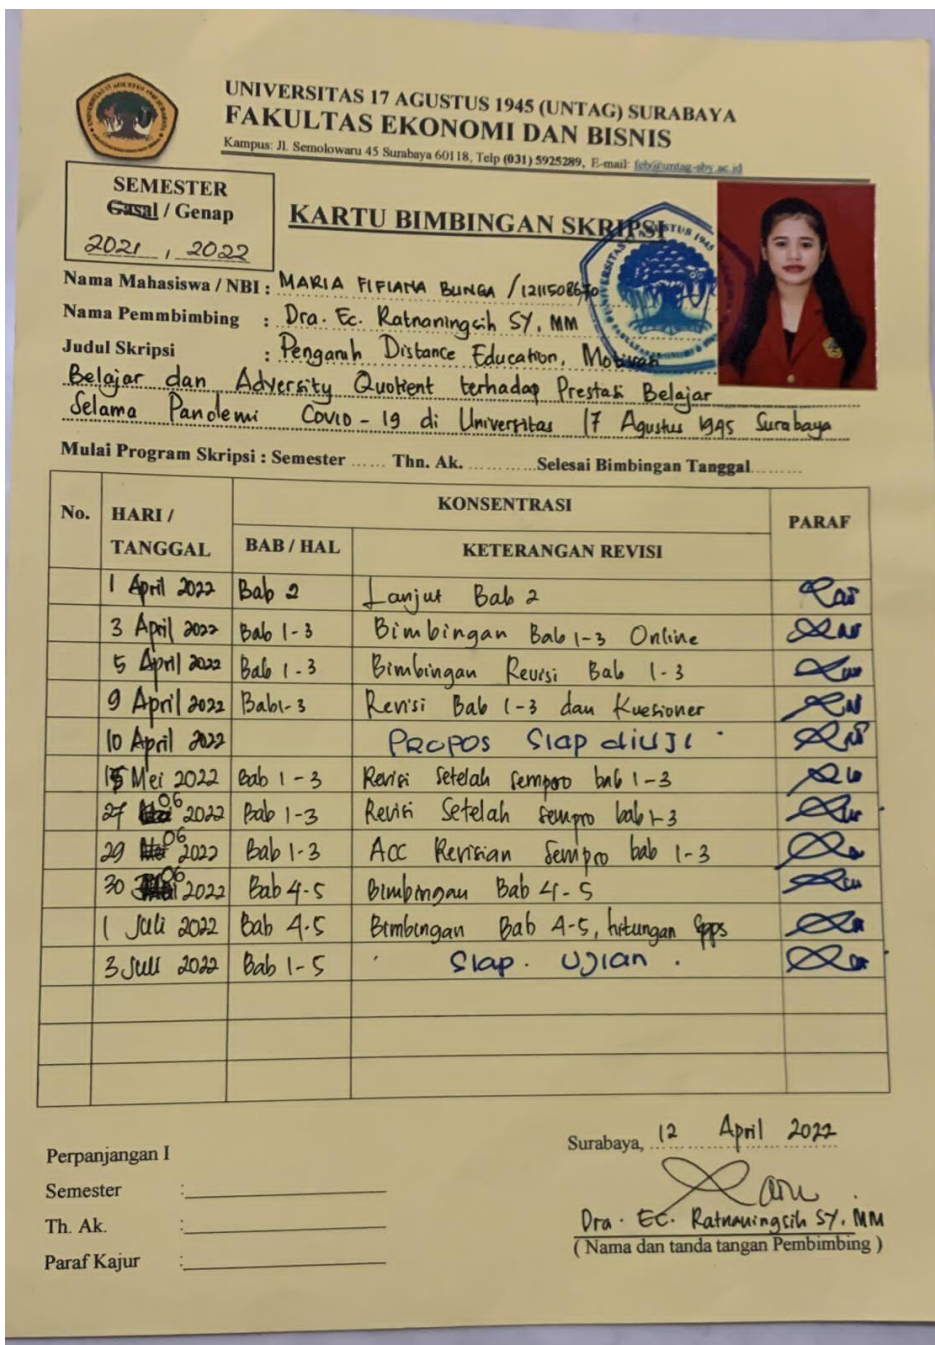 UNIVERSITAS 17 AGUSTUS 1945 (UNTAG) SURABAYA
FAKULTAS EKONOMI DAN BISNIS
Kampus: Jl. Semolowaru 45 Surabaya 60118, Telp (031) 5925289, E-mail: feb@untag-sby.ac.id
SEMESTER
Gasal / Genap
2021 , 2022
KARTU BIMBINGAN SKRIPSI
Nama Mahasiswa / NBI : MARIA FIFIANA BUNGA / 1211508670
Nama Pemmbimbing : Dra. Ec. Ratnaningsih SY, MM
Judul Skripsi : Pengaruh Distance Education, Motivasi
Belajar dan Adversity Quotient terhadap Prestasi Belajar
Selama Pandemi Covid - 19 di Universitas 17 Agustus 1945 Surabaya
Mulai Program Skripsi : Semester ...... Thn. Ak. ............Selesai Bimbingan Tanggal.........
No. HARI / TANGGAL KONSENTRASI PARAF
BAB / HAL KETERANGAN REVISI
1 April 2022 Bab 2 Lanjut Bab 2
3 April 2022 Bab 1-3 Bimbingan Bab 1-3 Online
5 April 2022 Bab 1-3 Bimbingan Revisi Bab 1-3
9 April 2022 Bab 1-3 Revisi Bab 1-3 dan Kuesioner
10 April 2022 PROPOS SIAP DIUJI
Mei 2022 Bab 1-3 Revisi Setelah Sempro bab 1-3
27 06 2022 Bab 1-3 Revisi Setelah Sempro bab 1-3
29 06 2022 Bab 1-3 ACC Revisian Sempro bab 1-3
30 06 2022 Bab 4-5 Bimbingan Bab 4-5
1 Juli 2022 Bab 4-5 Bimbingan Bab 4-5, hitungan spps
3 Juli 2022 Bab 1-5 Siap. Ujian.
Surabaya, 12 April 2022
Perpanjangan I
Semester :
Th. Ak. :
Paraf Kajur :
Dra. EC. Ratnaningsih SY. MM
( Nama dan tanda tangan Pembimbing )